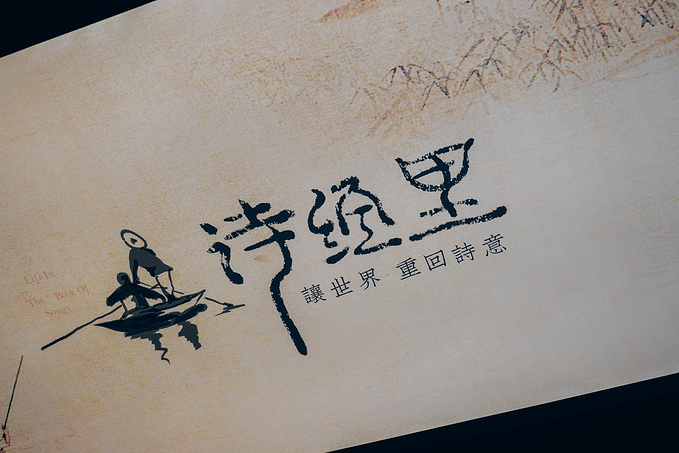 诗经里
讓世界 重回詩意
Life In
The Book Of
Songs